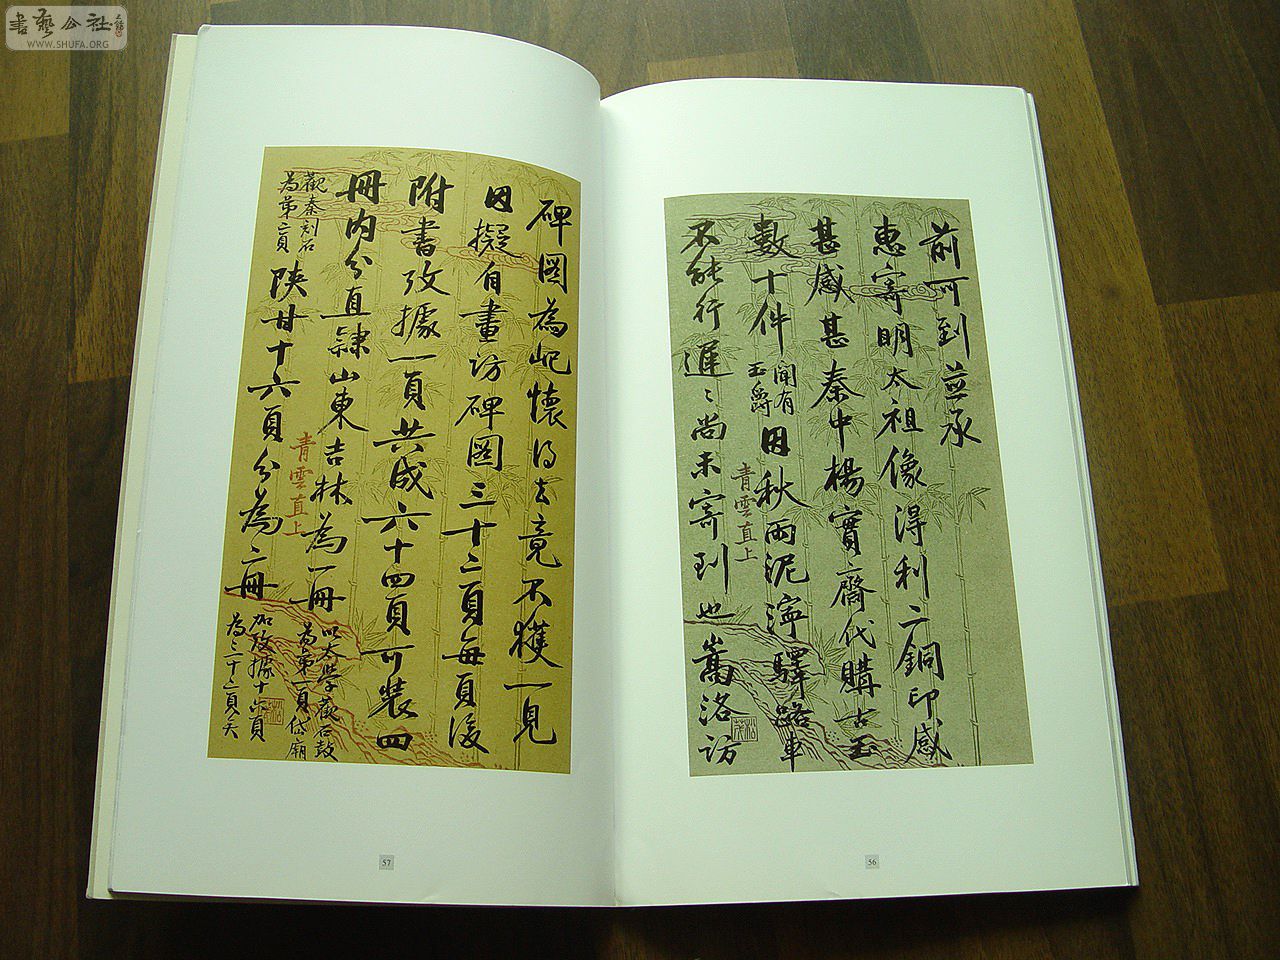 書藝公社
WWW.SHUFA.ORG
前可到並承
惠寄明太祖像得利二銅印感
甚感甚秦中楊實齋代購古玉
數十件
聞有
玉爵
因秋雨泥濘驛路車
不能行遲〻尚未寄到也嵩洛訪
青雲直上
56
碑圖為屺懷得去竟不獲一見
因擬自畫訪碑圖三十二頁每頁後
附書攷據一頁共成六十四頁可裝四
冊內分直隸山東吉林為一冊
以太學石鼓
為第一頁岱廟
觀秦刻石
為第二頁
陝甘十六頁分為二冊
加攷據十六頁
為三十二頁矣
青雲直上
57